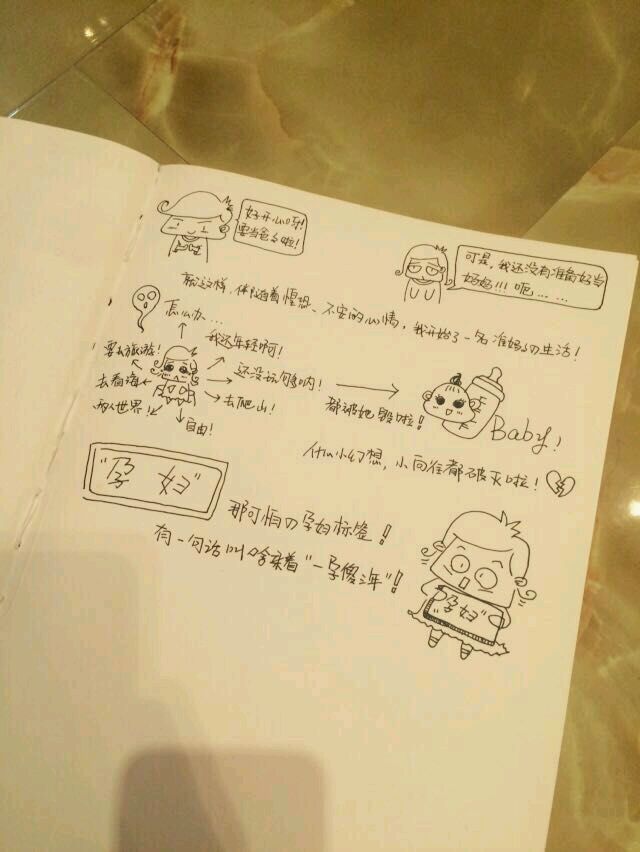 好开心呀!
要当爸爸啦!
可是,我还没有准备好当
妈妈!!! 呃……
就这样,伴随着惶恐、不安的心情,我开始了一名准妈妈の生活!
怎么办...
我还年轻啊!
要去旅游!
还没玩够呐!
去看海
去爬山!
两人世界!
自由!
都被她毁啦!
Baby!
什么小幻想,小向往都破灭啦!
"孕 妇"
那可怕の孕妇标签!
有一句话叫啥来着"一孕傻3年"!
"孕妇"